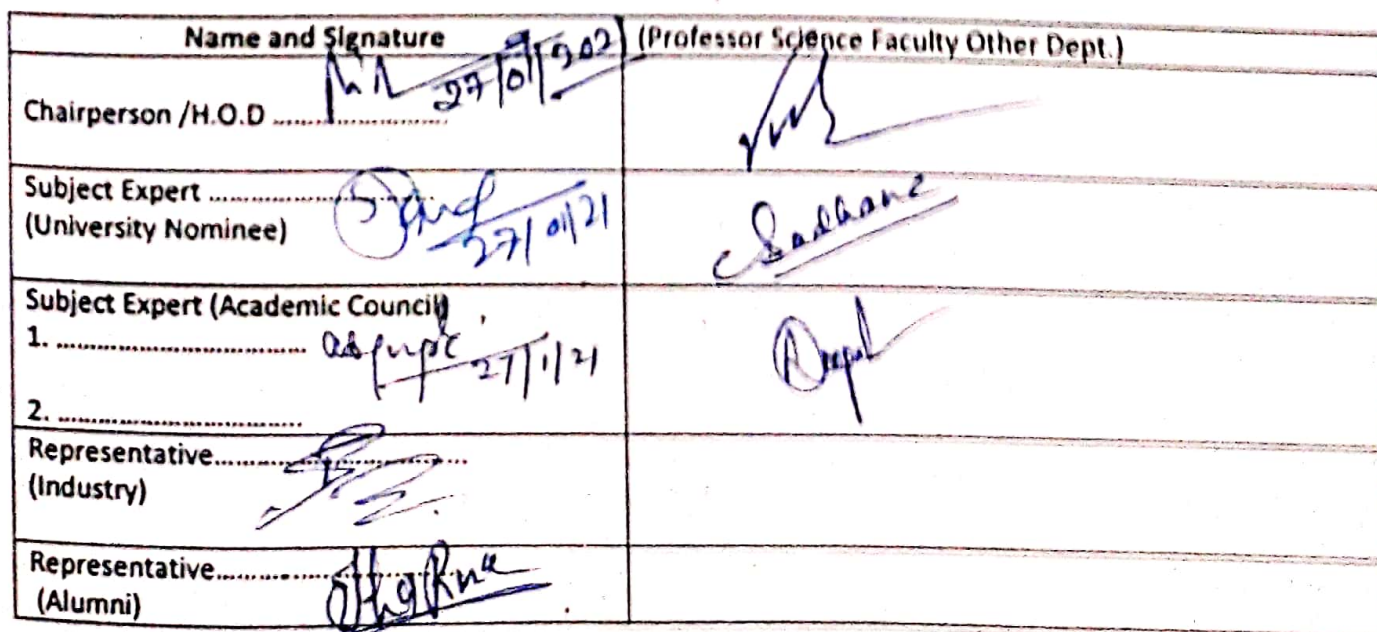 Name and Signature
(Professor Science Faculty Other Dept.)
27/01/202
Chairperson /H.O.D ........................
Subject Expert ................................
(University Nominee)
27/01/21
Sadhana
Subject Expert (Academic Council)
1. ..................................
27/1/21
2. ..................................
Representative..................................
(Industry)
Representative..................................
(Alumni)